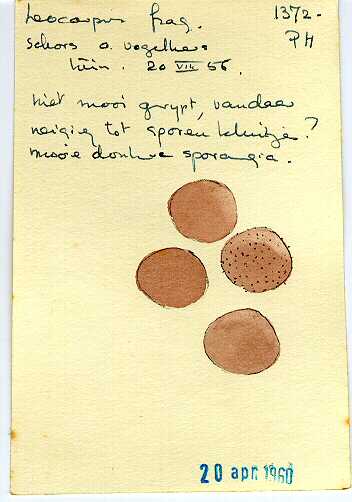 Leocarpus frag. 1372-
Schors o. vogelkers PH
tuin. 20 VIII 56.
Niet mooi gerypt, vandaar
neiging tot sporen kluitje?
mooie donkere sporangia.
20 apr 1960